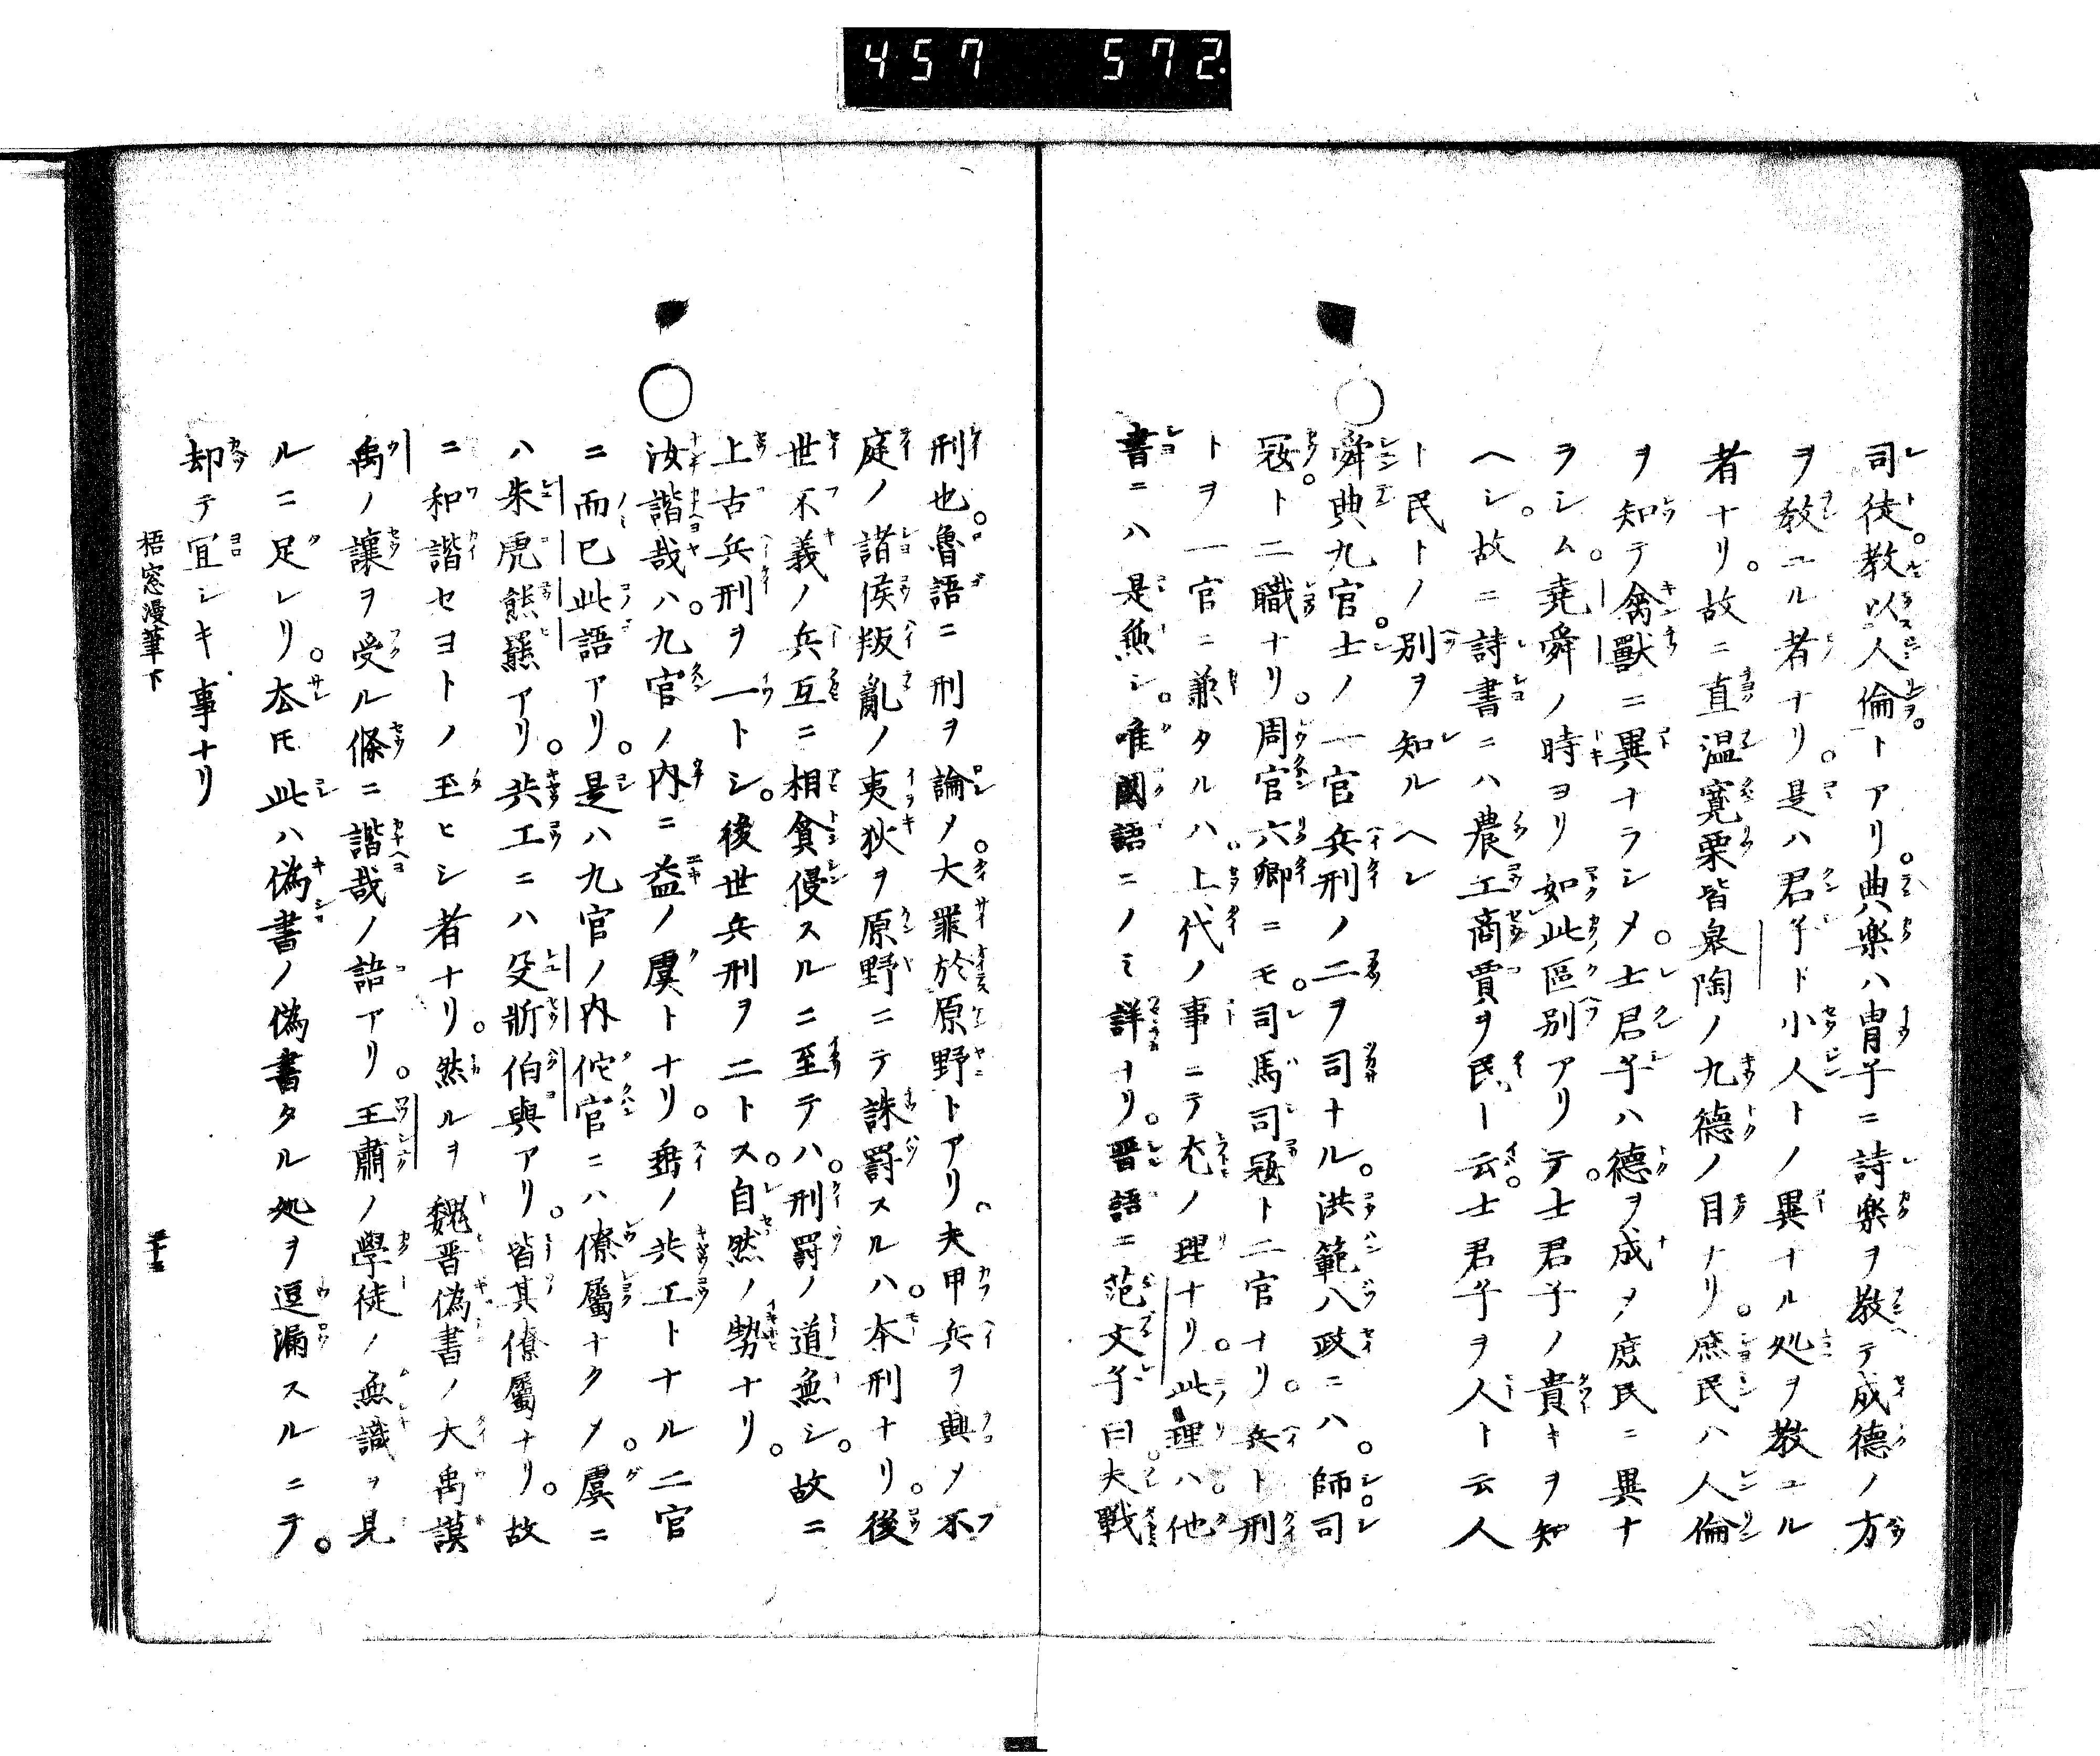 457 572.
司徒。教以人倫トアリ。典楽ハ胄子ニ詩楽ヲ教テ成德ノ方
ヲ教ユル者ナリ。是ハ君子ト小人トノ異ナル処ヲ教ユル
者ナリ。故ニ直温寛栗皆皋陶ノ九德ノ目ナリ。庶民ハ人倫
ヲ知テ禽獸ニ異ナラシメ。士君子ハ德ヲ成メ庶民ニ異ナ
ラシム。堯舜ノ時ヨリ如此區别アリテ。士君子ノ貴キヲ知
ヘシ。故ニ詩書ニハ農工商賈ヲ民ト云。士君子ヲ人ト云人
ト民トノ别ヲ知ルヘシ
○舜典九官。士ノ一官兵刑ノ二ヲ司ナル。洪範八政ニハ。師司
寇。ト二職ナリ。周官六卿ニモ。司馬司寇ト二官ナリ。兵ト刑
トヲ一官ニ兼タルハ。上代ノ事ニテ尤ノ理ナリ。此理ハ。他
書ニハ是無シ。唯國語ニノミ詳ナリ。晋語ニ范文子曰。夫戰
刑也。魯語ニ刑ヲ論メ。大罪於原野トアリ。夫甲兵ヲ興メ不
庭ノ諸侯叛亂ノ夷狄ヲ原野ニテ誅罰スルハ。本刑ナリ。後
世不義ノ兵互ニ相貪侵スルニ至テハ。刑罰ノ道無シ。故ニ
上古兵刑ヲ一トシ。後世兵刑ヲ二トス。自然ノ勢ナリ。
○汝諧哉ハ。九官ノ内ニ益ノ虞トナリ。垂ノ共工トナル二官
ニ而已此語アリ。是ハ九官ノ内佗官ニハ僚屬ナクメ。虞ニ
ハ朱虎熊羆アリ。共工ニハ殳斨伯與アリ。皆其僚屬ナリ。故
ニ和諧セヨトノ玉ヒシ者ナリ。然ルヲ魏晋偽書ノ大禹謨
禹ノ讓ヲ受ル條ニ諧哉ノ語アリ。王肅ノ學徒ノ無識ヲ見
ルニ足レリ。厺𪜈此ハ偽書ノ偽書タル処ヲ逗漏スルニテ。
却テ冝シキ事ナリ
梧窓漫筆下